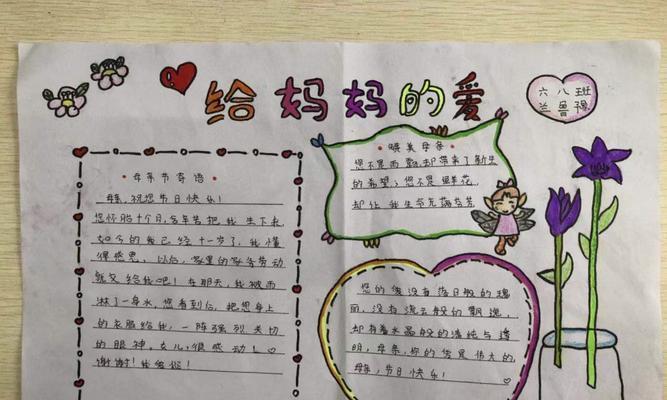 给妈妈的爱
六八班
兰鲁
母亲节寄语
母亲,祝您节日快乐!
您怀胎十个月,辛辛苦苦把我生下来
如今的我已经十一岁了,我懂
得感恩。以后,家里的家务劳动
就交给我吧!在那天,我被雨
淋了一身水,您看到后,把您身上
的衣服给我,一阵强烈关切
的眼神,女儿很感动!
谢谢!我爱您!
赞美母亲
您不是雨露,却带来了新生
的希望;您不是鲜花,
却让我生命充满芬芳
您的美没有落日般的瑰
丽,没有流云般的飘逸,
却有着水晶般的清纯与透
明,母亲,你的爱是伟大的,
母亲,节日快乐!